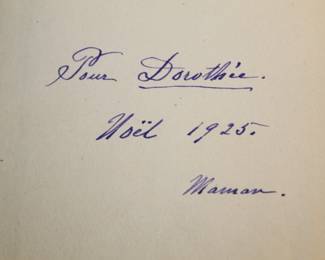 Pour Dorothée.
Noël 1925.
Maman.